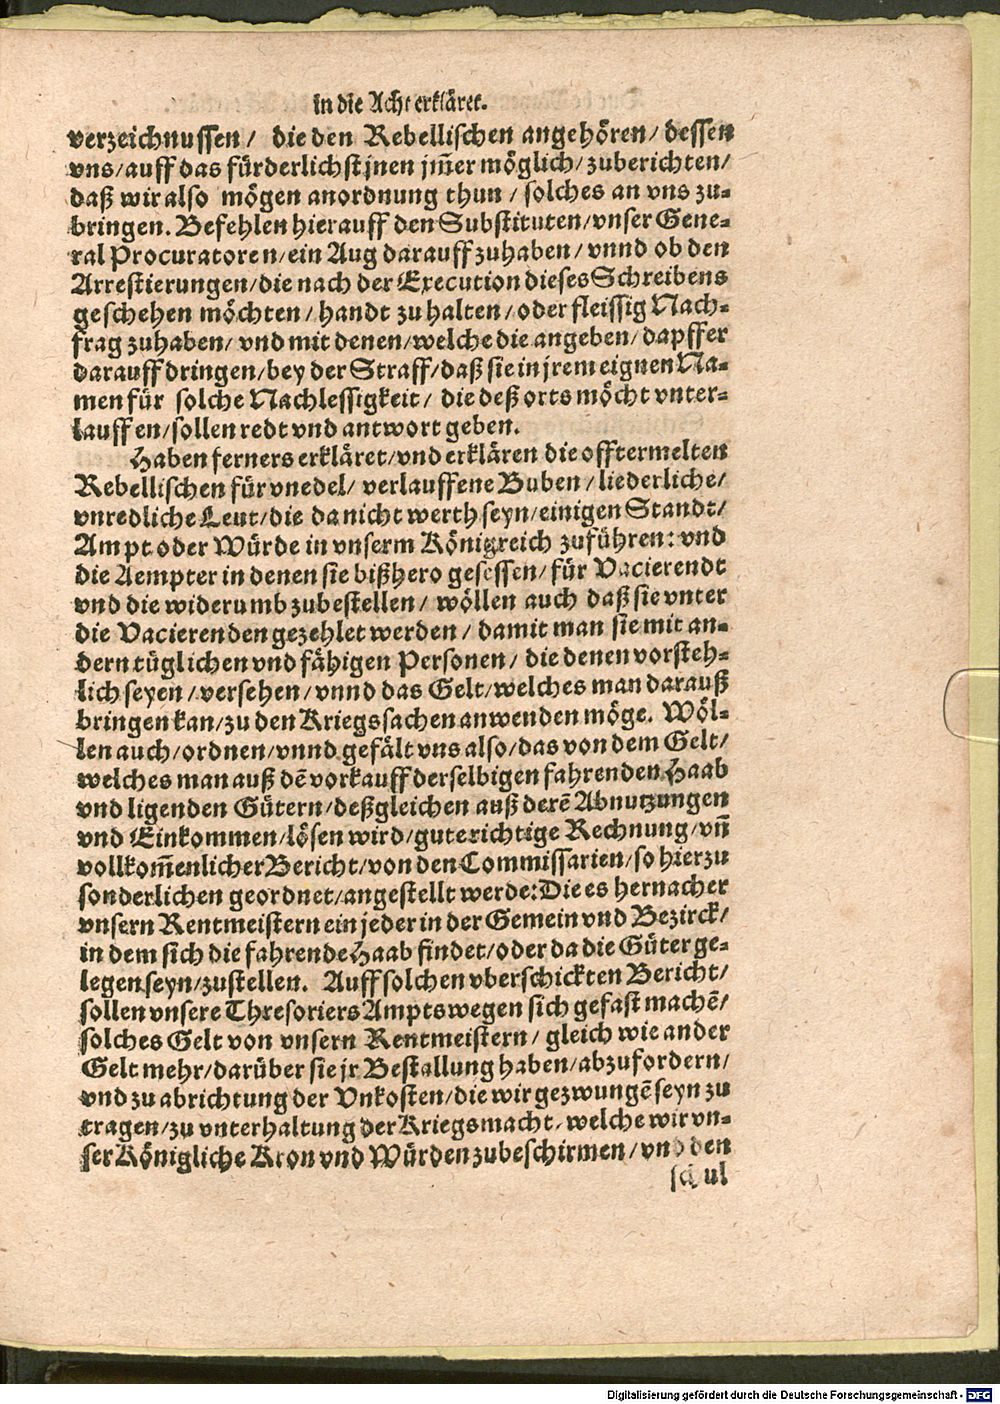 in die Acht erkläret.
verzeichnussen / die den Rebellischen angehören / dessen
vns / auff das fürderlichst jnen jm̃er möglich / zuberichten /
daß wir also mögen anordnung thun / solches an vns zu-
bringen. Befehlen hierauff den Substituten / vnser Gene-
ral Procuratoren / ein Aug darauff zuhaben / vnnd ob den
Arrestierungen / die nach der Execution dieses Schreibens
geschehen möchten / handt zu halten / oder fleissig Nach-
frag zuhaben / vnd mit denen / welche die angeben / dapffer
darauff dringen / bey der Straff / daß sie in jrem eignen Na-
men für solche Nachlessigkeit / die deß orts möcht vnter-
lauffen / sollen redt vnd antwort geben.
Haben ferners erkläret / vnd erklären die offtermelten
Rebellischen für vnedel / verlauffene Buben / liederliche /
vnredliche Leut / die da nicht werth seyn / einigen Standt /
Ampt oder Würde in vnserm Königreich zuführen: vnd
die Aempter in denen sie bißhero gesessen / für Vacierendt
vnd die widerumb zubestellen / wöllen auch daß sie vnter
die Vacierenden gezehlet werden / damit man sie mit an-
dern tüglichen vnd fähigen Personen / die denen vorsteh-
lich seyen / versehen / vnnd das Gelt / welches man darauß
bringen kan / zu den Kriegssachen anwenden möge. Wöl-
len auch / ordnen / vnnd gefält vns also / das von dem Gelt /
welches man auß dẽ vorkauff derselbigen fahrenden Haab
vnd ligenden Gütern / deßgleichen auß derẽ Abnutzungen
vnd Einkommen / lösen wird / gute richtige Rechnung / vñ
vollkom̃enlicher Bericht / von den Commissarien / so hierzu
sonderlichen geordnet / angestellt werde: Die es hernacher
vnsern Rentmeistern ein jeder in der Gemein vnd Bezirck /
in dem sich die fahrende Haab findet / oder da die Güter ge-
legen seyn / zustellen. Auff solchen vberschickten Bericht /
sollen vnsere Thresoriers Ampts wegen sich gefast machẽ /
solches Gelt von vnsern Rentmeistern / gleich wie ander
Gelt mehr / darüber sie jr Bestallung haben / abzufordern /
vnd zu abrichtung der Vnkosten / die wir gezwungẽ seyn zu
tragen / zu vnterhaltung der Kriegsmacht / welche wir vn-
ser Königliche Kron vnd Würden zubeschirmen / vnd den
schul
Digitalisierung gefördert durch die Deutsche Forschungsgemeinschaft - DFG